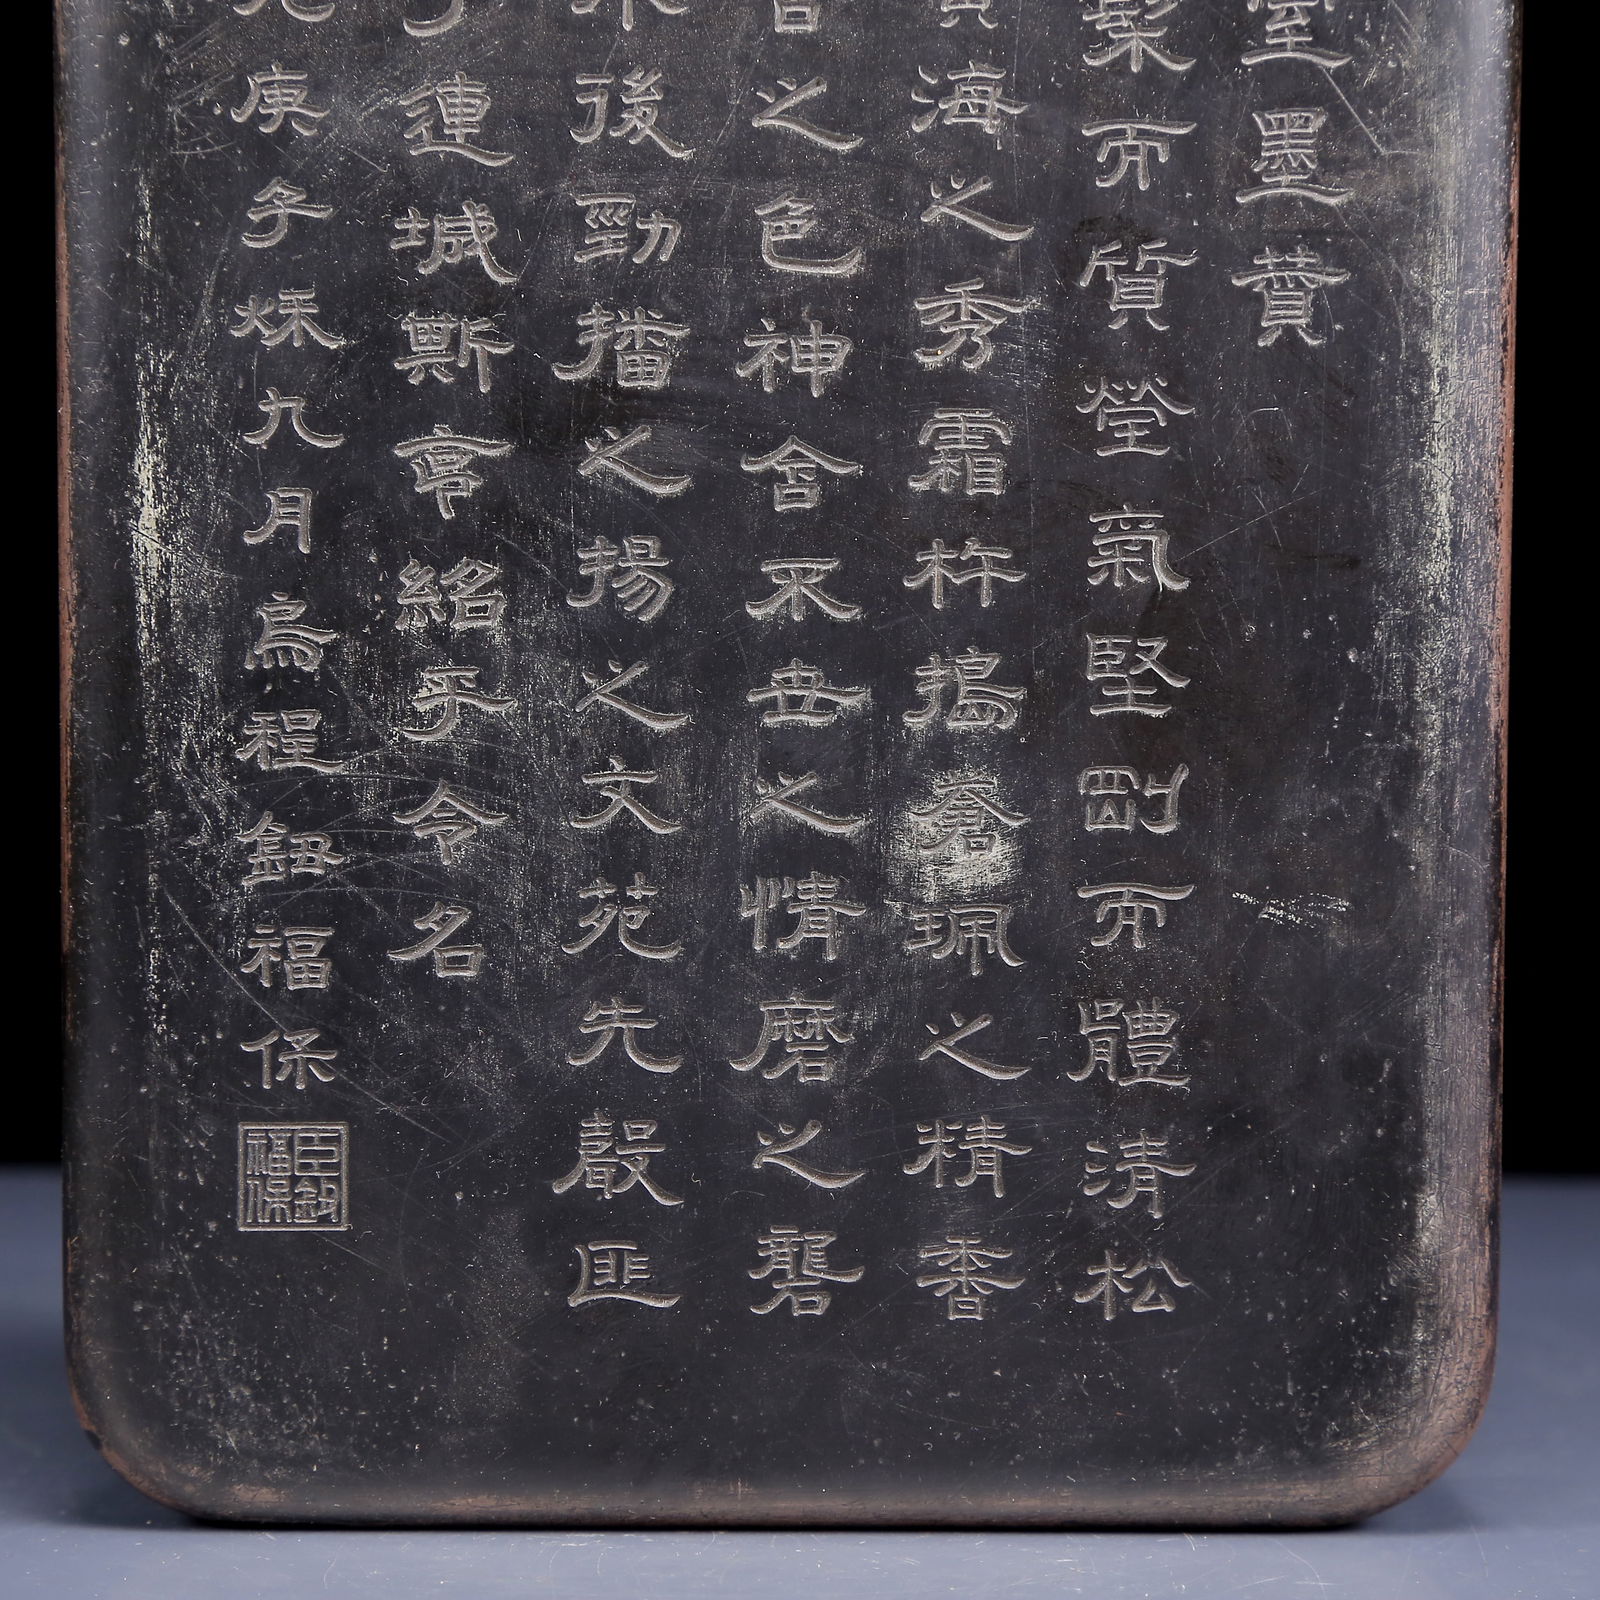 室墨贊
而質瑩氣堅剛而體清松
海之秀霜杵搗蒼珮之精香
之色神含不世之情磨之礱
後勁播之揚之文苑先聲匪
連城斯享紹乎令名
庚子秌九月烏程鈕福保
臣鈕福保